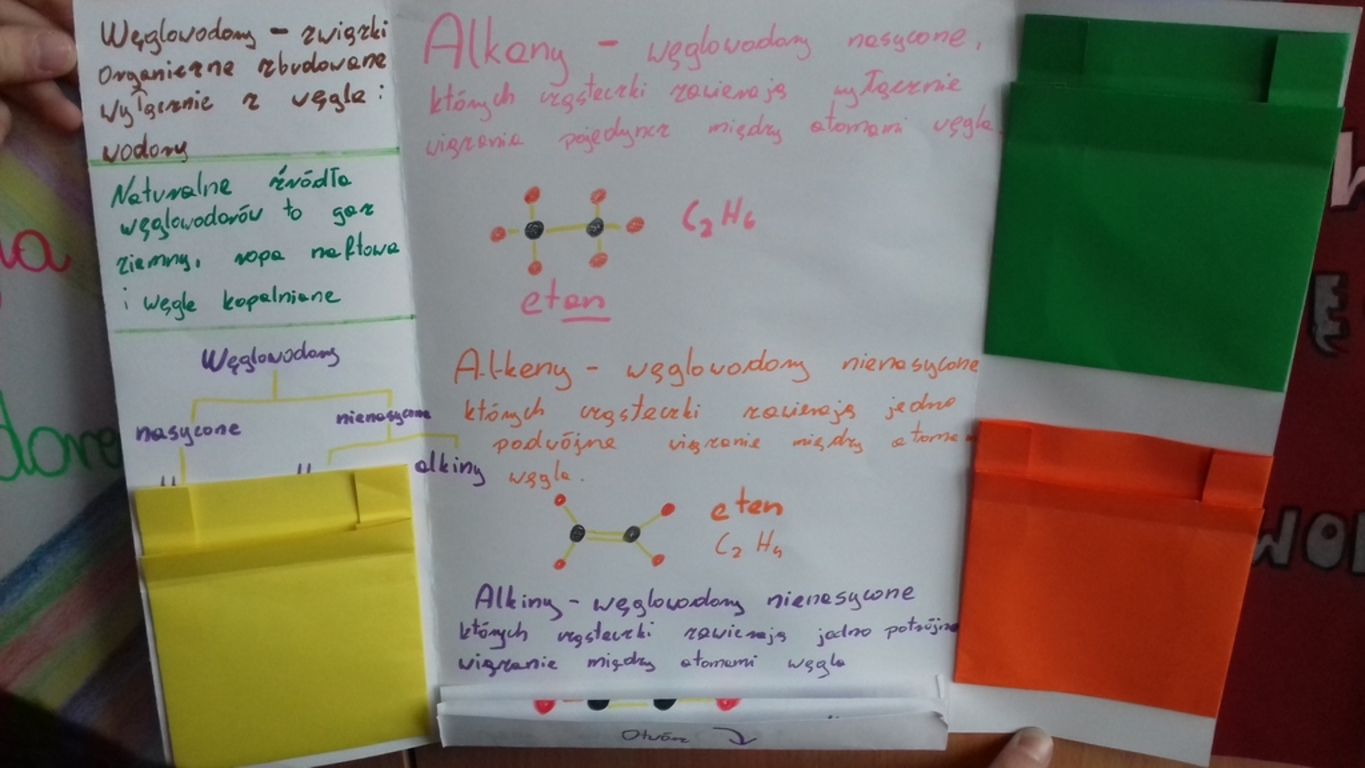 Węglowodory - związki
organiczne zbudowane
wyłącznie z węgla i
wodoru
Naturalne źródła
węglowodorów to gaz
ziemny, ropa naftowa
i węgle kopalniane
Węglowodory
nasycone
nienasycone
alkiny
Alkany - węglowodory nasycone,
których cząsteczki zawierają wyłącznie
wiązania pojedyncz między atomami węgla.
C2H6
etan
Alkeny - węglowodory nienasycone
których cząsteczki zawierają jedno
podwójne wiązanie między atomam
węgla.
eten
C2H4
Alkiny - węglowodory nienasycone
których cząsteczki zawierają jedno potrójne
wiązanie między atomami węgla
Otwórz